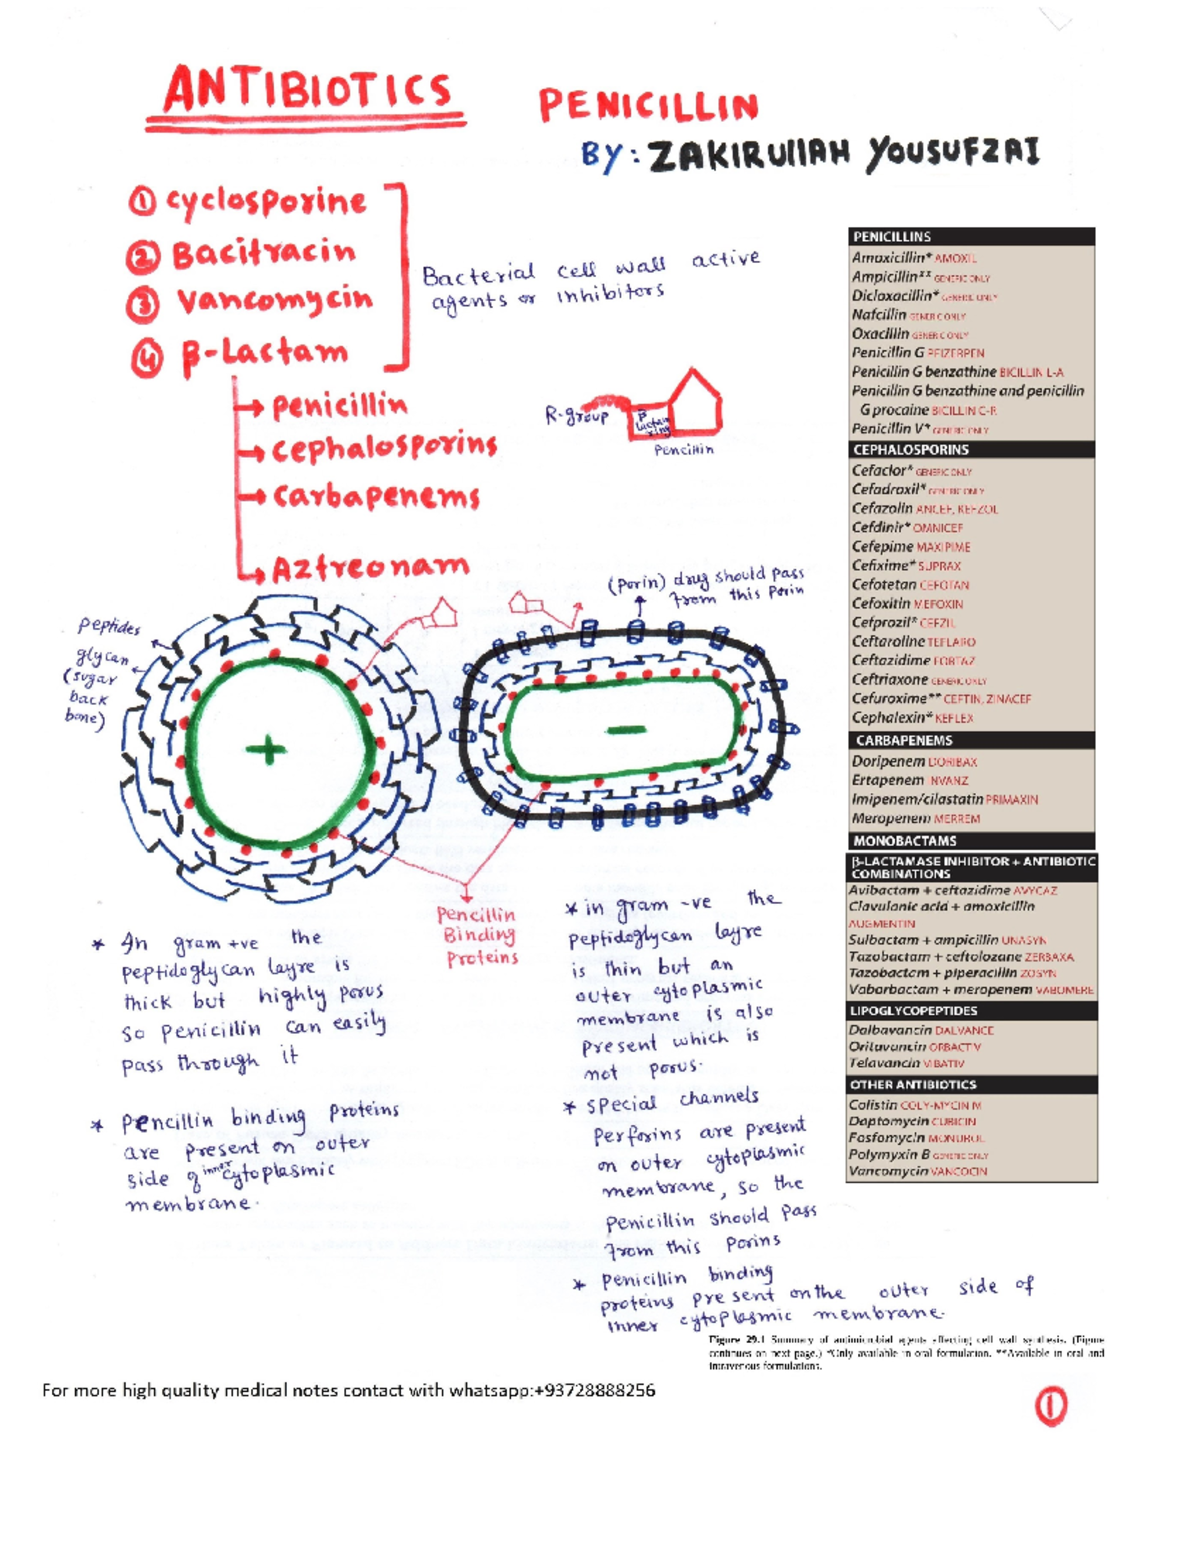 ANTIBIOTICS
PENICILLIN
BY: ZAKIRUllAH YOUSUFZAI
① cyclosporine
② Bacitracin
③ Vancomycin
④ β-Lactam
Bacterial cell wall active
agents or inhibitors
→ Penicillin
→ cephalosporins
→ Carbapenems
→ Aztreonam
R-group
β
lactam
ring
Pencillin
(Porin) drug should pass
from this Porin
peptides
glycan
(sugar
back
bone)
+
−
Pencillin
Binding
Proteins
* In gram +ve the
peptidoglycan layre is
thick but highly porus
so penicillin can easily
pass through it
* Pencillin binding Proteins
are present on outer
side of inner cytoplasmic
membrane.
* in gram -ve the
peptidoglycan layre
is thin but an
outer cytoplasmic
membrane is also
present which is
not porus.
* special channels
Perforins are present
on outer cytoplasmic
membrane, so the
penicillin should pass
from this Porins
* penicillin binding
proteins present on the outer side of
inner cytoplasmic membrane.
PENICILLINS
Amoxicillin* AMOXIL
Ampicillin** GENERIC ONLY
Dicloxacillin* GENERIC ONLY
Nafcillin GENERIC ONLY
Oxacillin GENERIC ONLY
Penicillin G PFIZERPEN
Penicillin G benzathine BICILLIN L-A
Penicillin G benzathine and penicillin
G procaine BICILLIN C-R
Penicillin V* GENERIC ONLY
CEPHALOSPORINS
Cefaclor* GENERIC ONLY
Cefadroxil* GENERIC ONLY
Cefazolin ANCEF, KEFZOL
Cefdinir* OMNICEF
Cefepime MAXIPIME
Cefixime* SUPRAX
Cefotetan CEFOTAN
Cefoxitin MEFOXIN
Cefprozil* CEFZIL
Ceftaroline TEFLARO
Ceftazidime FORTAZ
Ceftriaxone GENERIC ONLY
Cefuroxime** CEFTIN, ZINACEF
Cephalexin* KEFLEX
CARBAPENEMS
Doripenem DORIBAX
Ertapenem INVANZ
Imipenem/cilastatin PRIMAXIN
Meropenem MERREM
MONOBACTAMS
β-LACTAMASE INHIBITOR + ANTIBIOTIC
COMBINATIONS
Avibactam + ceftazidime AVYCAZ
Clavulanic acid + amoxicillin
AUGMENTIN
Sulbactam + ampicillin UNASYN
Tazobactam + ceftolozane ZERBAXA
Tazobactam + piperacillin ZOSYN
Vaborbactam + meropenem VABOMERE
LIPOGLYCOPEPTIDES
Dalbavancin DALVANCE
Oritavancin ORBACTIV
Telavancin VIBATIV
OTHER ANTIBIOTICS
Colistin COLY-MYCIN M
Daptomycin CUBICIN
Fosfomycin MONUROL
Polymyxin B GENERIC ONLY
Vancomycin VANCOCIN
Figure 29.1 Summary of antimicrobial agents affecting cell wall synthesis. (Figure
continues on next page.) *Only available in oral formulation. **Available in oral and
intravenous formulations.
For more high quality medical notes contact with whatsapp:+93728888256
①